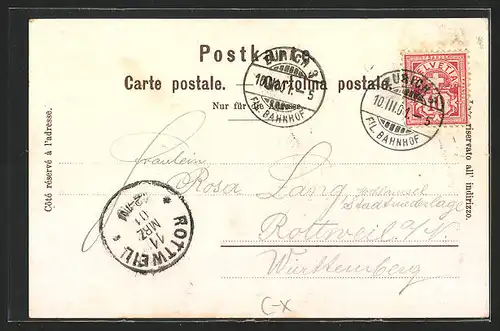 Postkarte
Carte postale. Cartolina postale.
Nur für die Adresse.
Côté réservé à l'adresse.
riservato all' indirizzo.
ZÜRICH
10.III.01.–5
FIL. BAHNHOF
ZÜRICH
10.III.01.–5
FIL. BAHNHOF
HELVETIA
Fräulein
Rosa Lang
Stadtniederlage
Rottweil a/N.
Württemberg
ROTTWEIL
11
MRZ
01
C-X